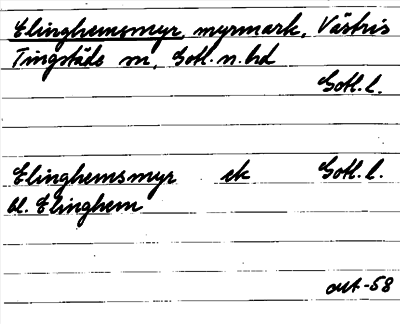 Elinghemsmyr, myrmark, Västris
Tingstäde sn, Gotl. n. hd
Gotl. l.
Elinghemsmyr ek Gotl. l.
bl. Elinghem
okt -58